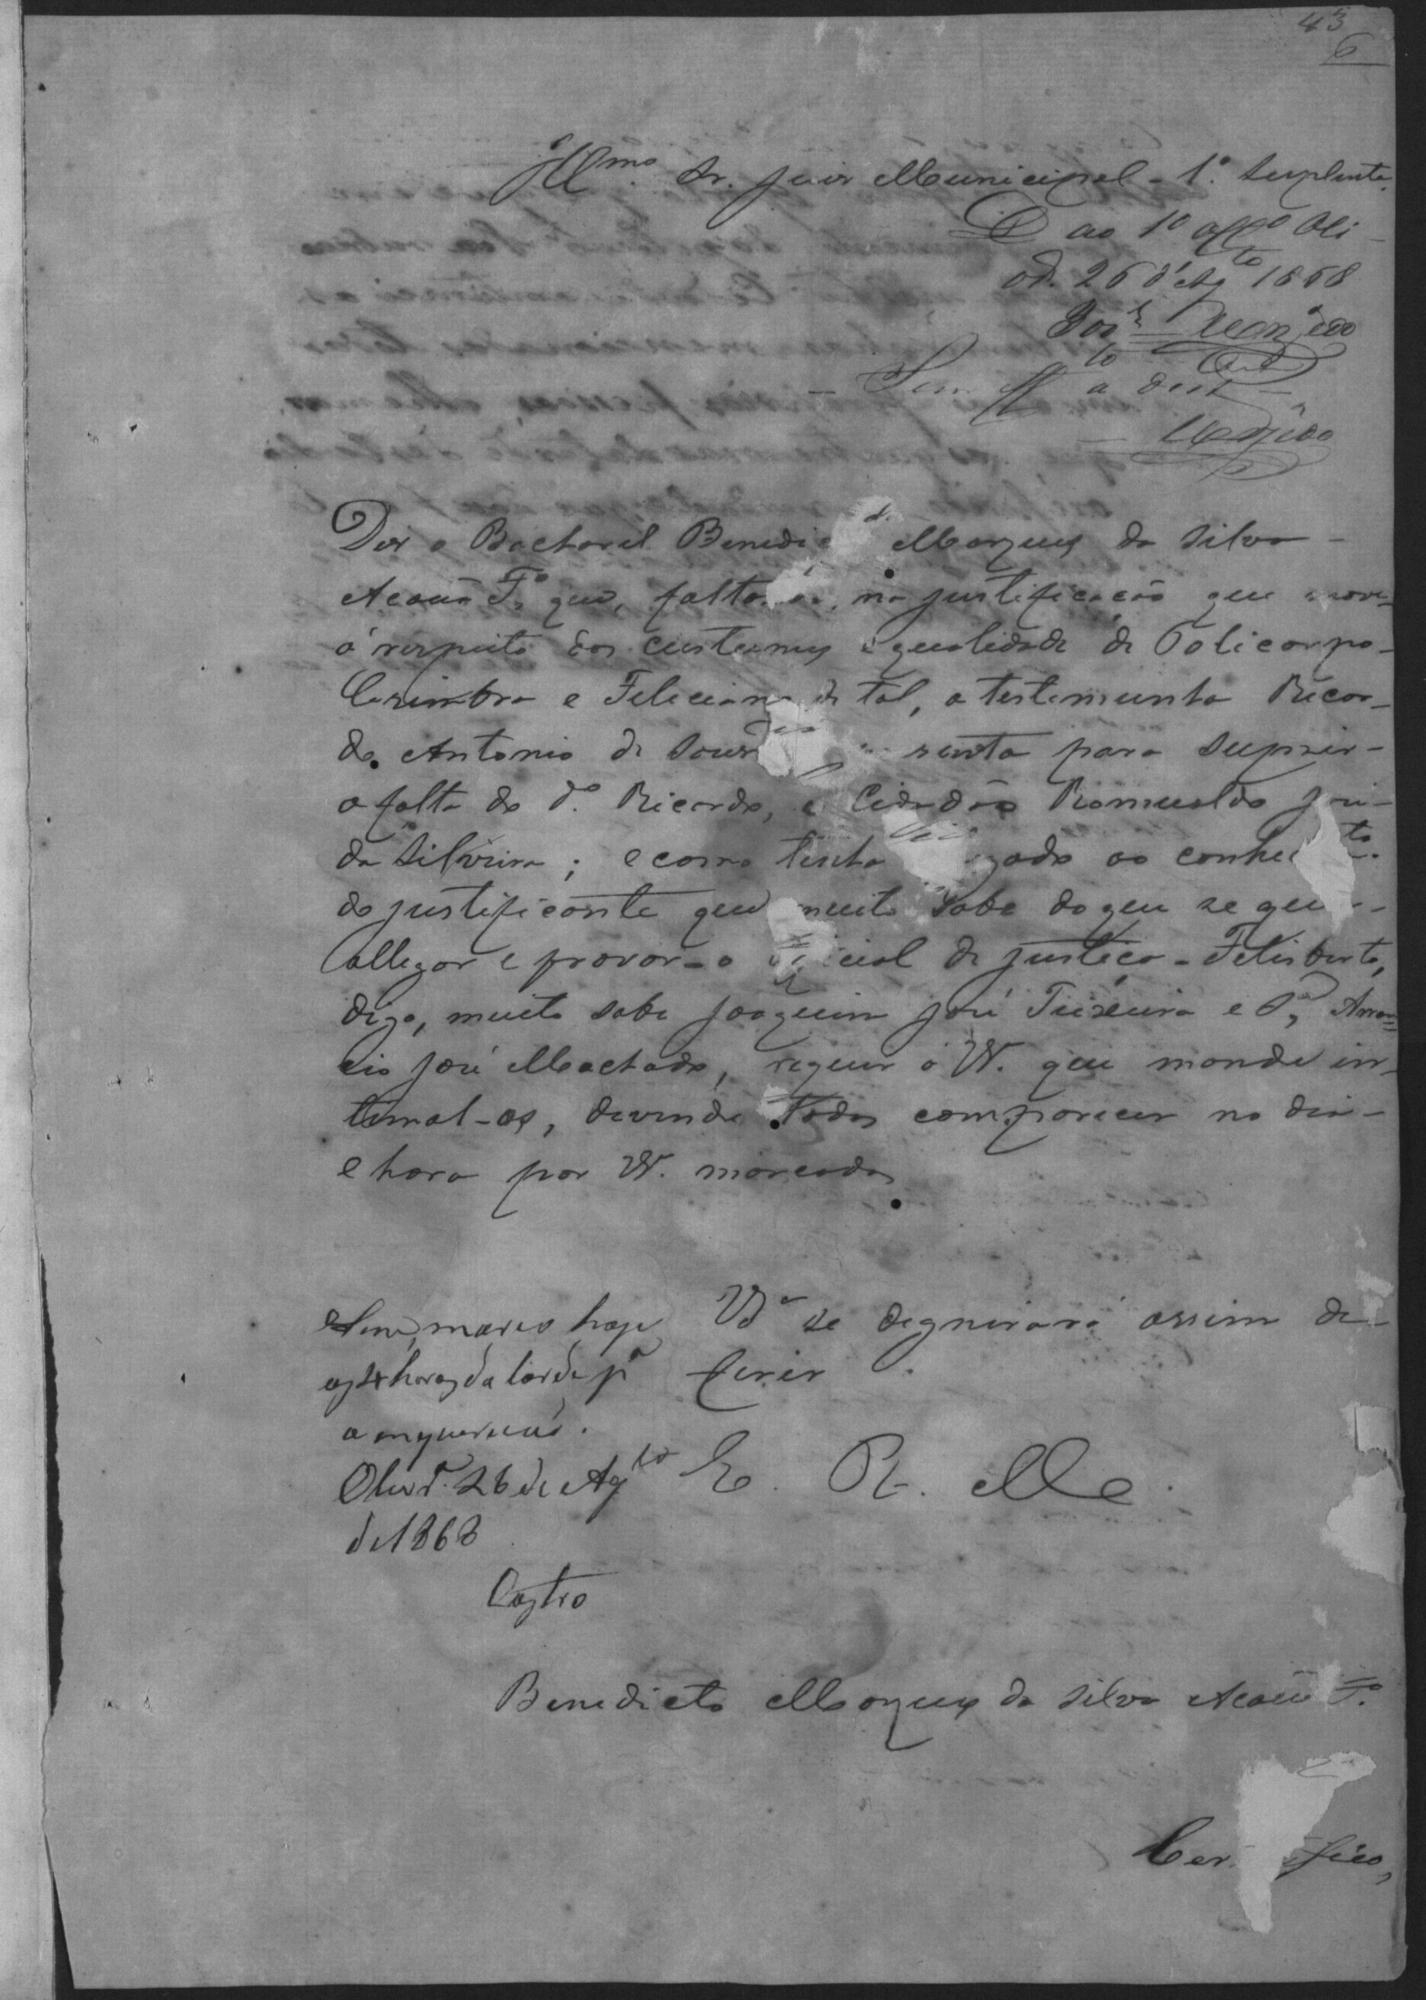 43
6
Illmo. Sr. Juis Municipal - 1.º Suplente.
D ao 1º Offº Oli-
vª. 26 d'Agto 1868
José
Sem Effto a dist
Diz o Bacharel Benedicto Marques da Silva
Acauã Fº. que, faltando, na justificação que move
á respeito dos custumes e qualidade de Policarpo
Cazimbra e Feliciano de tal, a testemunha Ricar-
do Antonio de Souza senta para suprir
a falta do dº. Ricardo, o Cidadão Romualdo José
da Silveira; e como tenha gado ao conhecto.
do justificante que muito sabe do que se quer
allegar e provar - o Official de justiça - Felisberto,
digo, muito sabe Joaquim José Teixeira e Pe. Aman-
cio José Machado, requer á VS. que mande in-
timal-os, devendo todos comparecer no dia
e hora por VS. marcados
VSª se dignirará assim de-
ferir.
E. R. Mce.
Sim, marco hoje
as 4 horas da tarde pª
a inquerição.
Olivª. 26 de Agto
de 1868
Castro
Benedicto Marques da Silva Acauã Fº.
Certifico,